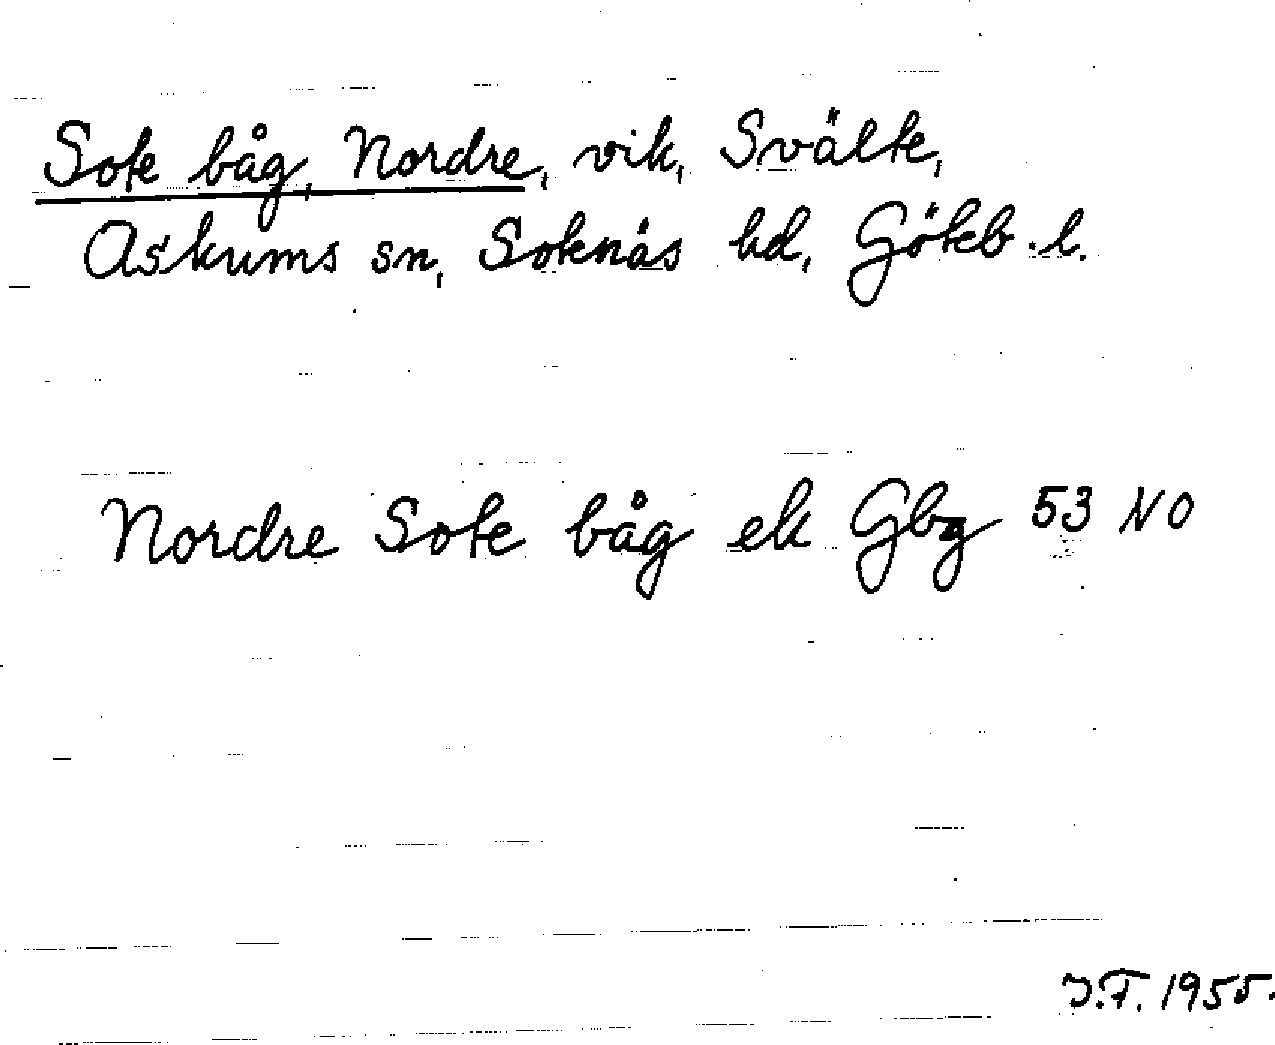 Sote båg, Nordre, vik, Svälte,
Askums sn, Sotenäs hd, Göteb. l.
Nordre Sote båg ek Gbg 53 NO
J.F. 1955.